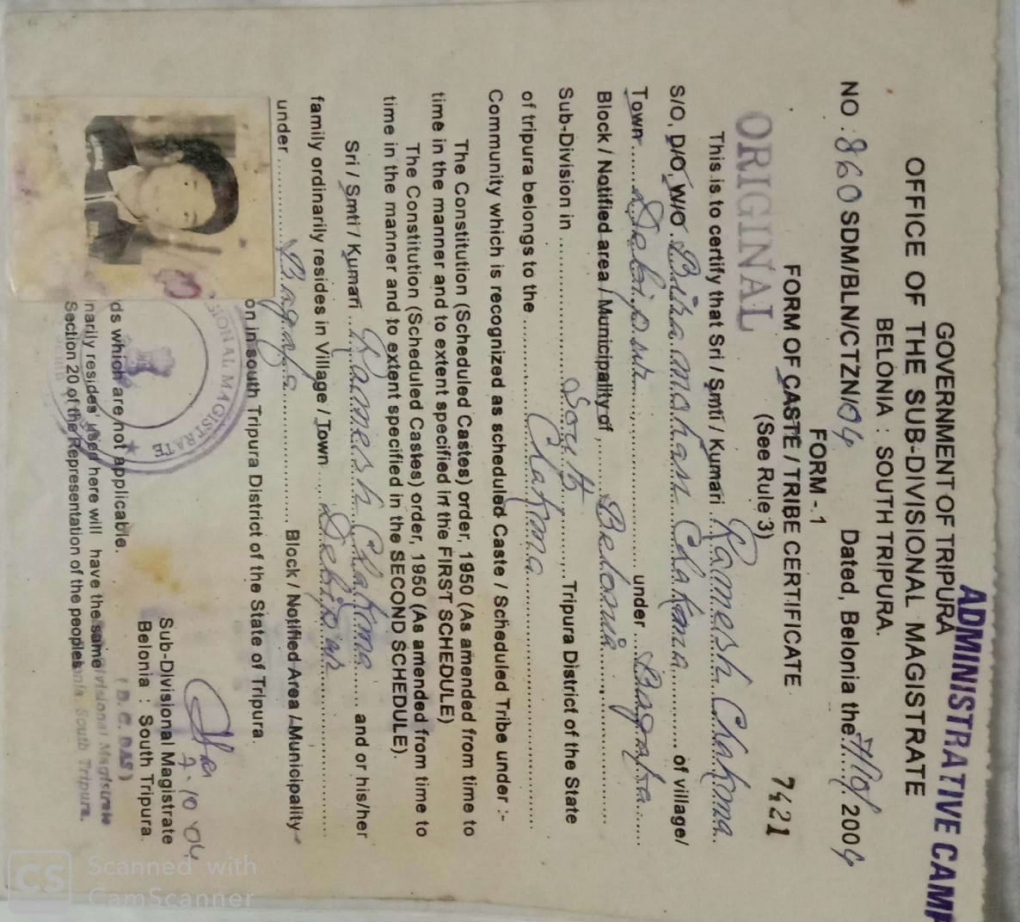 ADMINISTRATIVE CAM
GOVERNMENT OF TRIPURA
OFFICE OF THE SUB-DIVISIONAL MAGISTRATE
BELONIA : SOUTH TRIPURA.
NO : 860 SDM/BLN/CTZN/04 Dated, Belonia the 7/10/ 2004
FORM - 1
FORM OF CASTE / TRIBE CERTIFICATE 7421
(See Rule 3)
ORIGINAL
This is to certify that Sri / Smti / Kumari Ramesh Chakma
S/O, D/O, W/O Chakma of village/
Town Debipur under Bagafa
Block / Notified area / Municipality of Belonia
Sub-Division in South Tripura District of the State
of tripura belongs to the Chakma
Community which is recognized as scheduled Caste / Scheduled Tribe under :-
The Constitution (Scheduled Castes) order, 1950 (As amended from time to
time in the manner and to extent specified in the FIRST SCHEDULE)
The Constitution (Scheduled Castes) order, 1950 (As amended from time to
time in the manner and to extent specified in the SECOND SCHEDULE).
Sri / Smti / Kumari Ramesh Chakma and or his/her
family ordinarily resides in Village / Town Debipur
under Bagafa Block / Notified Area / Municipality
on in south Tripura District of the State of Tripura.
7.10.04
Sub-Divisional Magistrate
Belonia : South Tripura.
ds which are not applicable.
narily resides' used here will have the same
Section 20 of the Representation of the peoples
(B. C. DAS)
visional Magistrate
South Tripura.
SIONAL MAGISTRATE
CS Scanned with
CamScanner